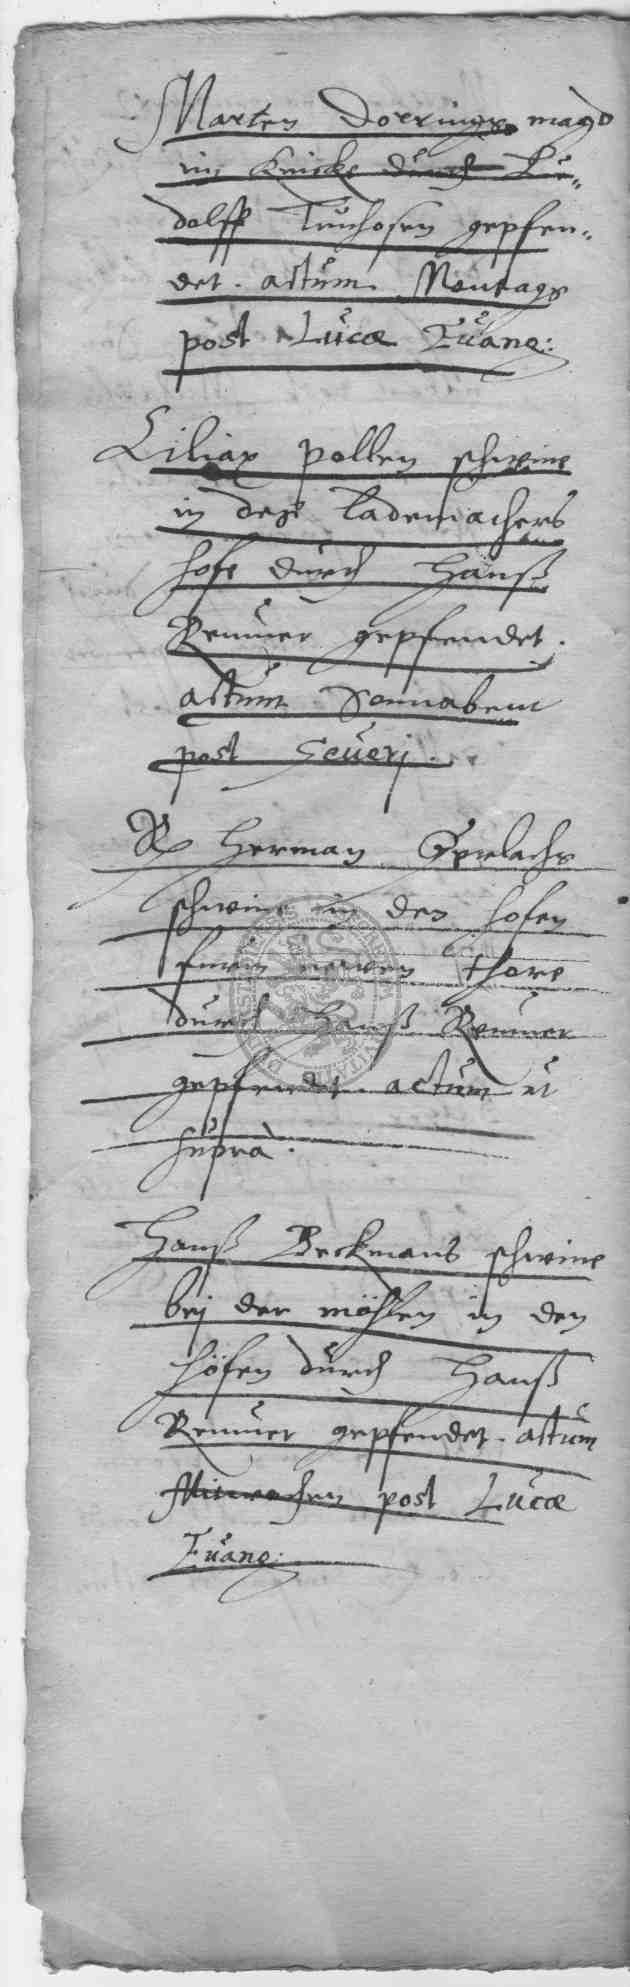 Marten Doerrings magd
im Knicke durch Lu-
dolff Tünhosen gepfen-
det. actum Montags
post Lucæ Evang:
Ciliax Pollen schweine
in des Rademachers
hofe durch Hanß
Remmer gepfendet.
actum Sonnabent
post Severi.
Herman Gerlachs
schweine in den hofen
fürm newen thore
durch Hanß Remmer
gepfendet. actum ut
supra.
Hanß Beckmans schweine
bei der möhlen in den
höfen durch Hanß
Remmer gepfendet. actum
Mitwochen post Lucæ
Evang: